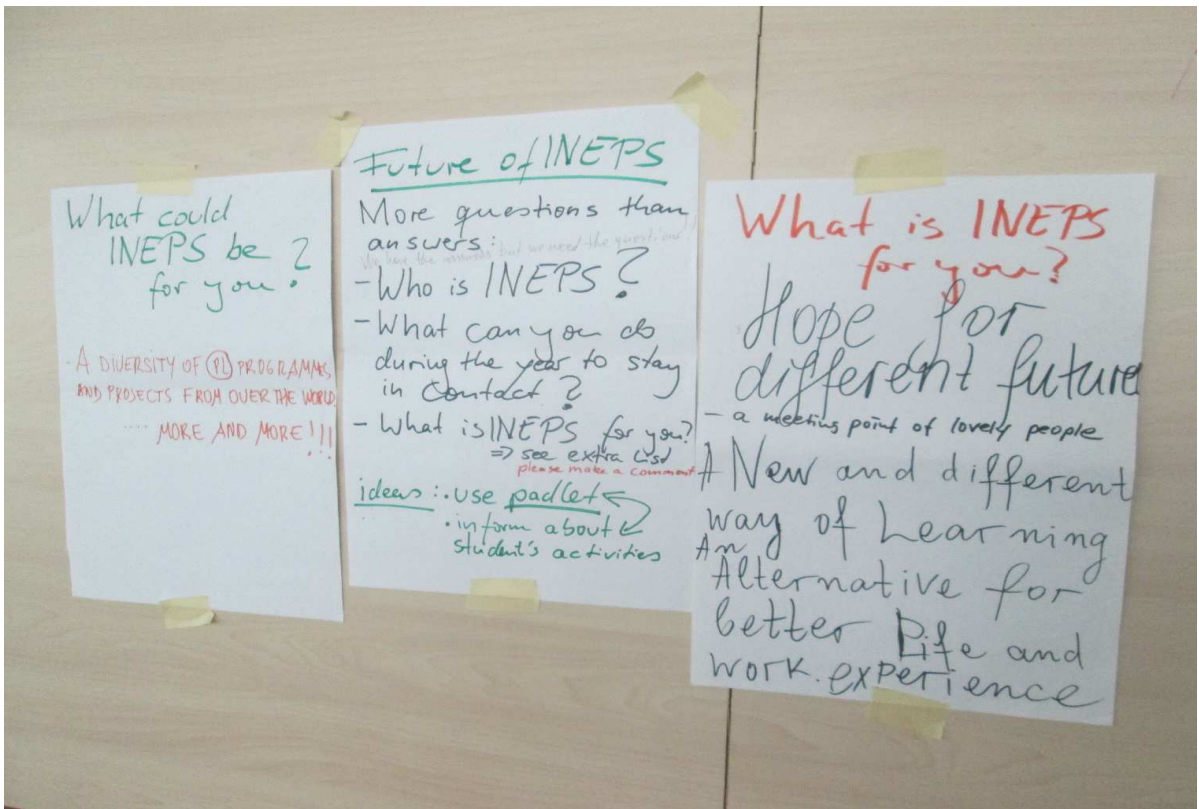 What could
INEPS be ?
for you
- A DIVERSITY OF PL PROGRAMMES
AND PROJECTS FROM OVER THE WORLD
.... MORE AND MORE !!!
Future of INEPS
More questions than
answers:
We have the answers but we need the questions!
- Who is INEPS ?
- What can you do
during the year to stay
in contact ?
- What is INEPS for you?
=> see extra list
please make a comment
ideas: • use padlet
• inform about
student's activities
What is INEPS
for you?
Hope for
different future
- a meeting point of lovely people
A New and different
way of Learning
An
Alternative for
better Life and
work. experience